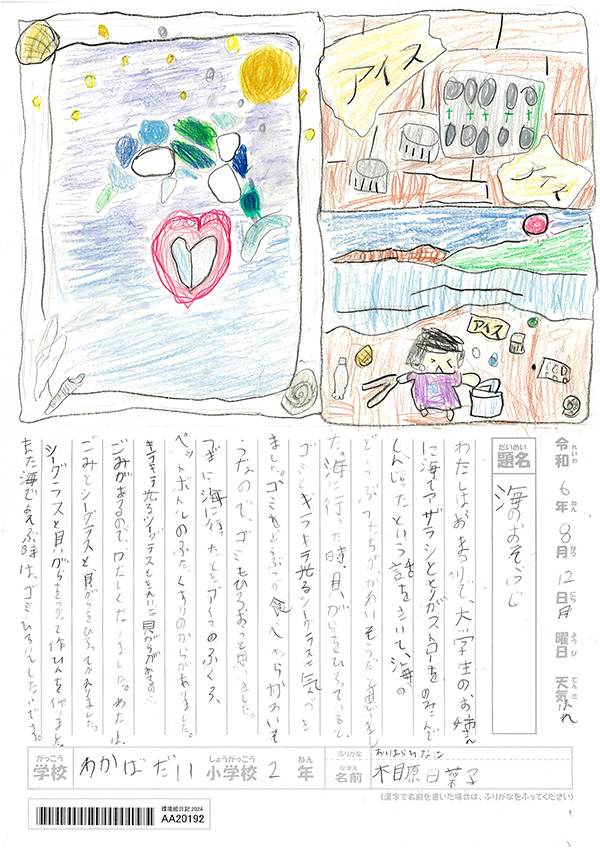 アイス
アイス
アイス
令和6年8月12日月曜日 天気はれ
れいわ ねん がつ にち ようび てんき
だいめい
題名
海のおそうじ
わたしは、おまつりで、大学生のお姉さん
に海でアザラシととりがストローをのみこんで
しんじゃったという話をきいて、海の
どうぶつたちがかわいそうだと思いまし
た。海に行った時、貝がらをひろっていると、
ゴミとキラキラ光るシーグラスに気づき
ました。ゴミをどうぶつが食べたらかわいそ
うなので、ゴミもひろおうと思いました。
つぎに海に行ったとき、アイスのふくろ、
ペットボトルのふた、くすりのからがありました。
キラキラ光るシーグラスときれいな貝がらがあるのに、
ごみがあるので、かなしくなりました。わたしは、
ごみとシーグラスと、貝がらをひろってかえりました。
シーグラスと貝がらをつかって作ひんを作りました。
また海であそぶ時は、ゴミひろいをしたいです。
がっこう
学校
わかばだい
しょうがっこう
小学校
2
ねん
年
ふりがな
なまえ
名前
相原日菜子
(漢字で名前を書いた場合は、ふりがなをふってください)
環境絵日記2024
AA20192